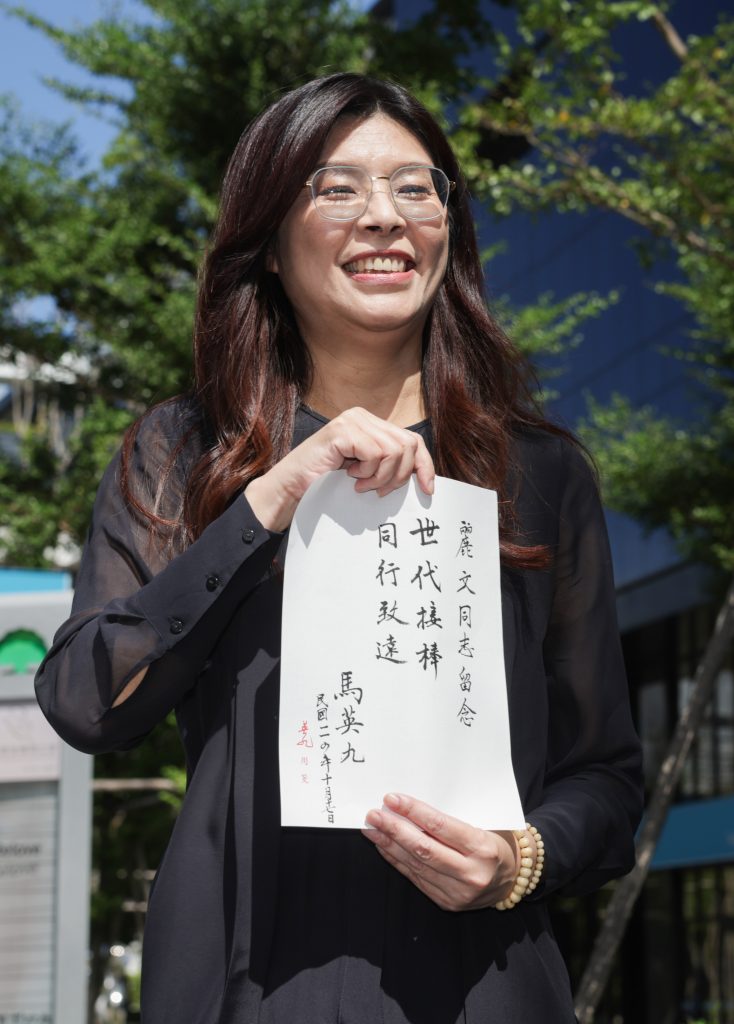 麗文同志留念
世代接棒
同行致遠
馬英九
民國一一四年十月十七日
英九用箋